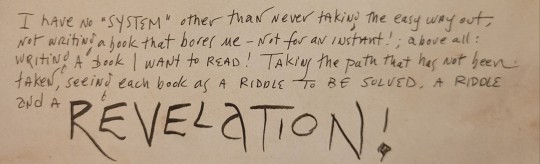 I have no "SYSTEM" other than never taking the easy way out,
not writing a book that bores me – not for an instant!; above all:
writing a book I want to READ! Taking the path that has not been
taken, seeing each book as a RIDDLE TO BE SOLVED. A RIDDLE
and a
REVELATION!